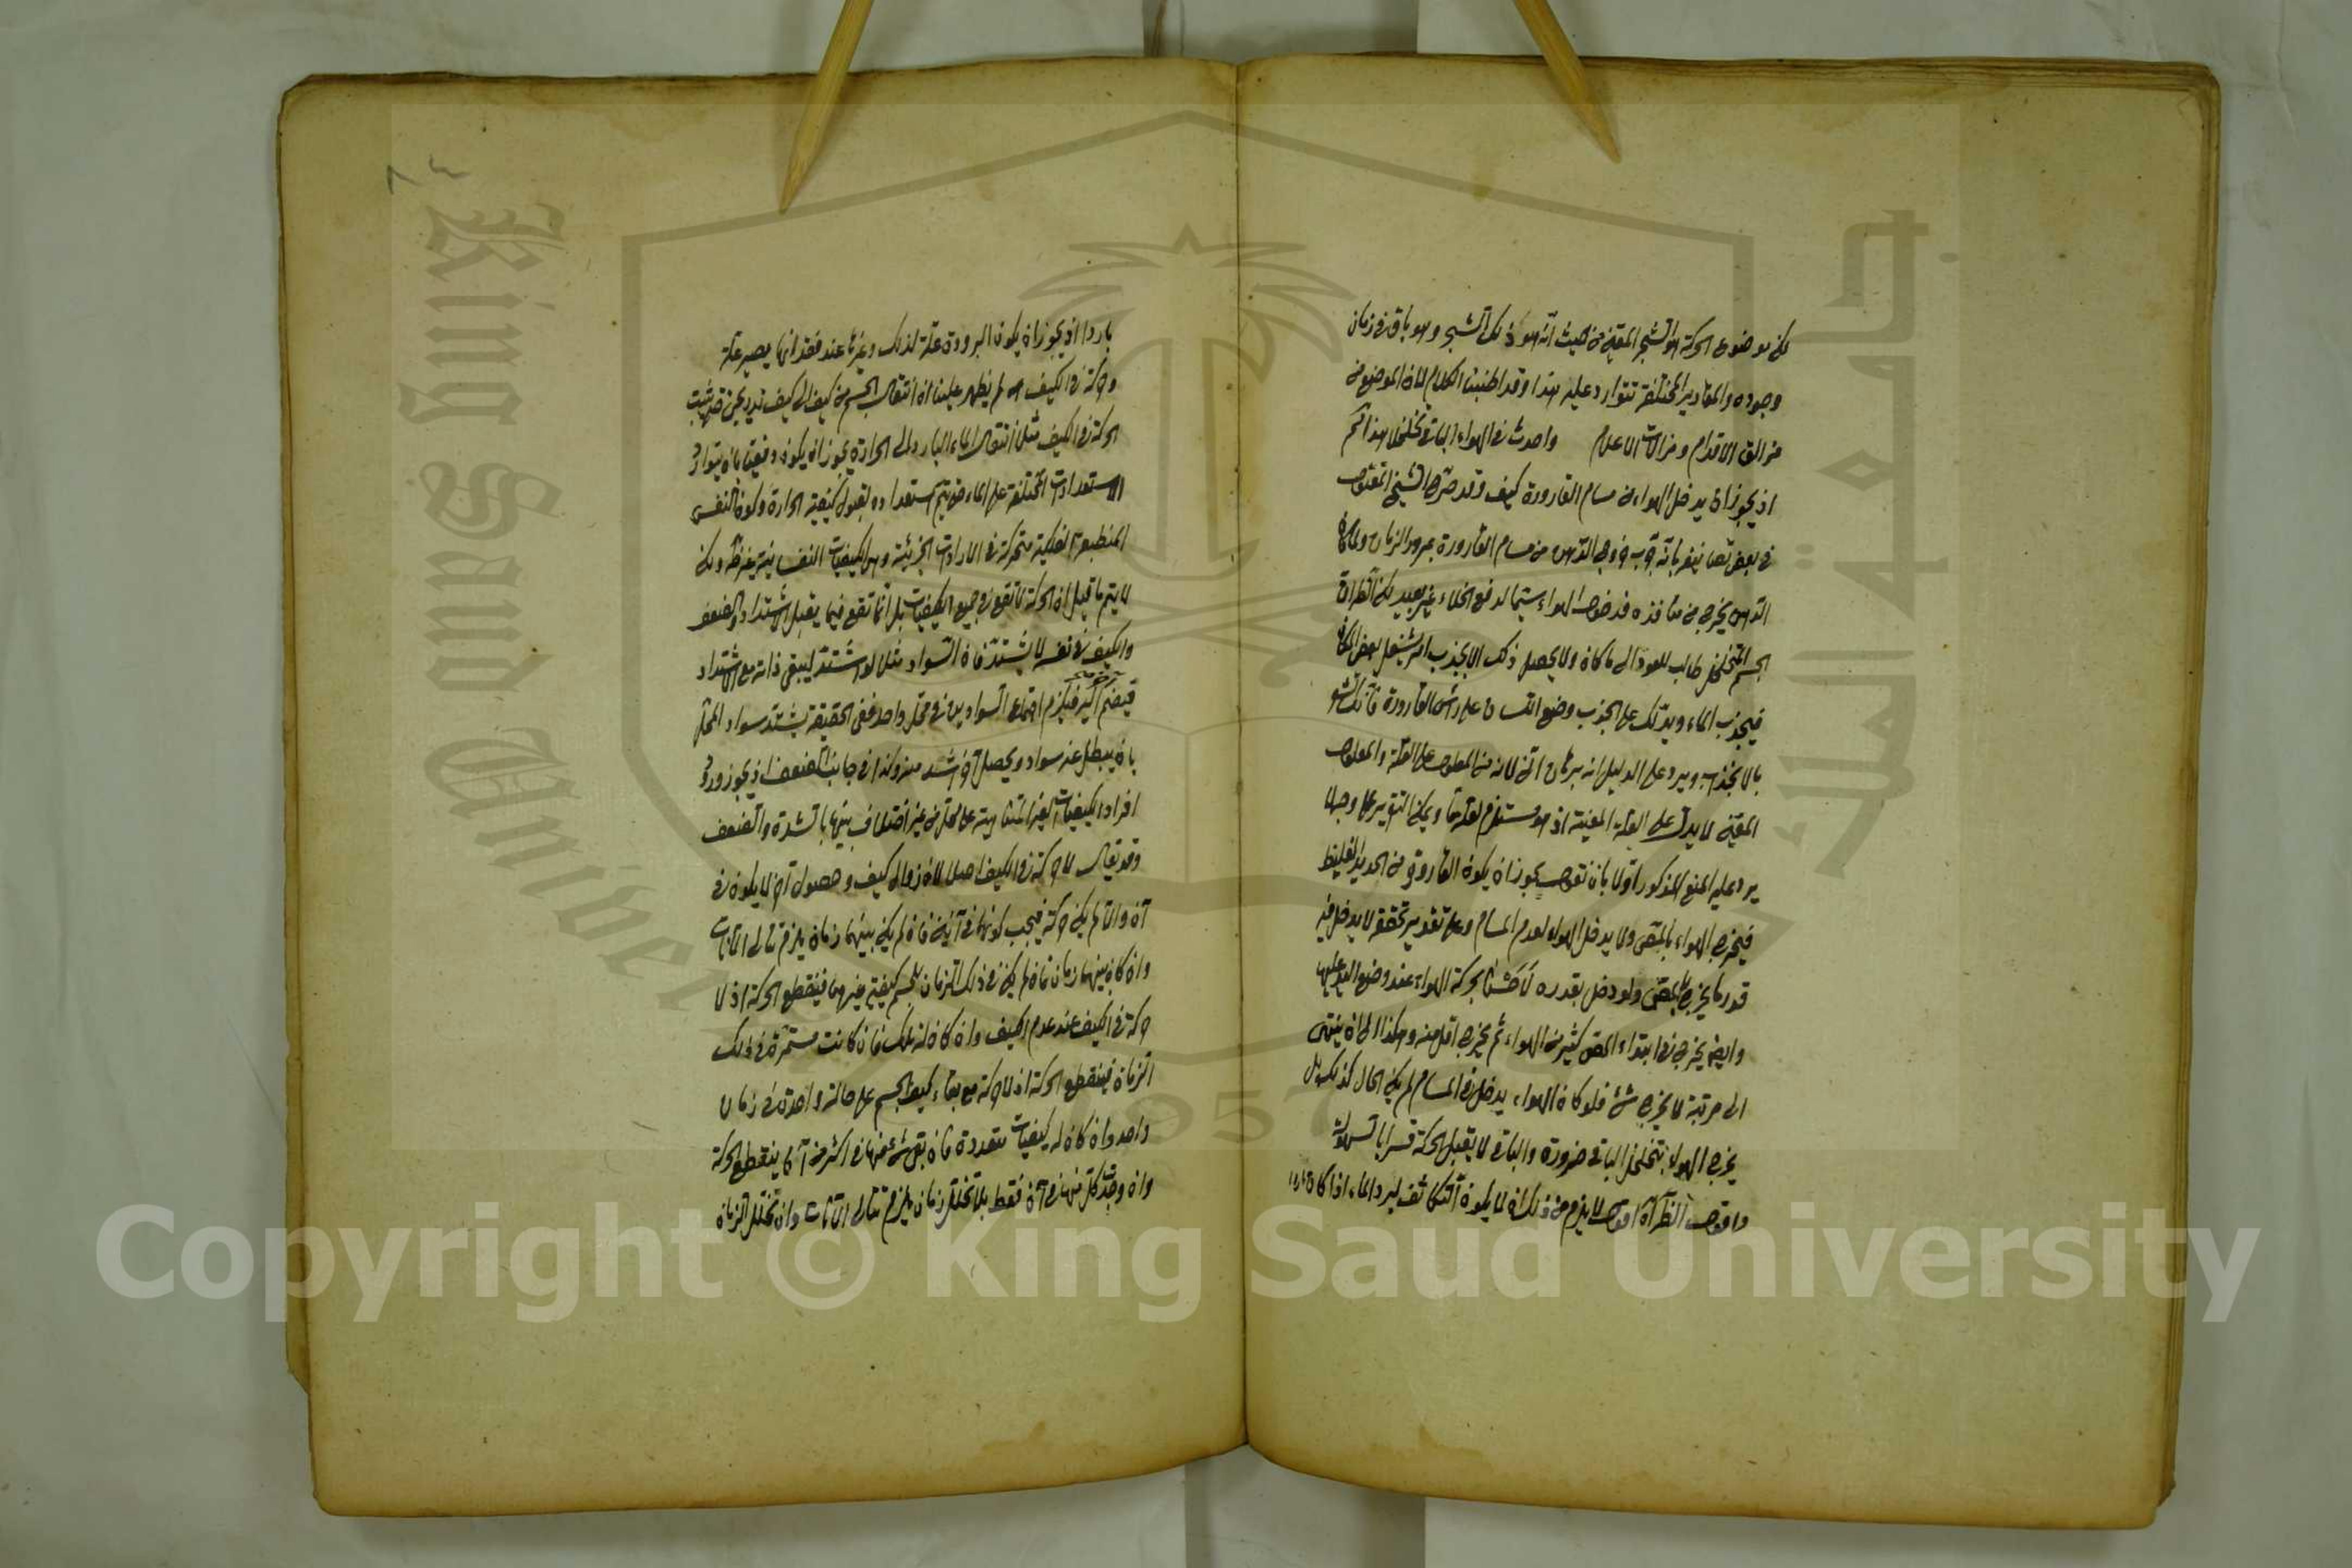 لكن موضوع الحركة هو الشجر المعين من حيث انه هو ذلك الشجر وهو باق في زمان
وجوده والمقادير المختلفة تتوارد عليه هذا وقد اطنبنا الكلام لان الموضع من
مزالق الاقدام ومزلات الاعلام واحدث في الهواء الباقي تخلخلا هذا آثم
اذ يجوز ان يدخل الهواء من مسام القارورة كيف وقد صرح الشيخ المقتول
في بعض تصانيفه بانه جرب خروج الدهن من مسام القارورة بمرور الزمان ولما كان
الدهن يخرج من منافذه فدخول الهواء سيما لدفع الخلاء غير بعيد لكن
الجسم المتخلخل طالب للعود الى ما كان ولا يحصل ذلك الا بجذب امر يشغل بعض المكان
فيجذب الماء ويدلك على الجذب وضع اللسان على رأس القارورة
بالانجذاب ويرد على الدليل انه برهان انّي لانه من المعلول على العلة والمعلول
المعين لا يدل على العلة المعينة اذ هو مستلزم لعلة ما ويمكن التقرير على وجه لا
يرد عليه المنع المذكور اولا بان نقول يجوز ان يكون القارورة من الحديد الغليظ
فيخرج الهواء بالمص ولا يدخل الهواء لعدم المسام وعلى تقدير تحققه لا يدخل فيه
قدر ما يخرج بالمص ولو دخل بقدره لاحسسنا بحركة الهواء عند وضع اليد عليها
وايضا يخرج في ابتداء المص كثير من الهواء ثم يخرج اقل منه وهكذا الى ان ينتهى
الى مرتبة لا يخرج شئ فلو كان الهواء يدخل في المسام لم يكن الحال كذلك بل
يخرج الهواء بتخلخل الباقي ضرورة والباقي لا يقبل الحركة قسرا بالسهولة
واقول انظر آه اقول لا يلزم من ذلك ان لا يكون التكاثف لبرد الماء اذا كان باردا
باردا اذ يجوز ان يكون البرودة علة لذلك وغيرها عند فقدانها يصير علة
وحركة في الكيف آه لم يظهر علينا ان انتقال الجسم من كيف الى كيف تدريجى حتى يثبت
الحركة في الكيف مثلا انتقال الماء البارد الى الحرارة يجوز ان يكون دفعيا بان يتوارد
الاستعدادات المختلفة على الماء حتى يتم استعداده لقبول كيفية الحرارة وكون النفس
المنطبعة الفلكية متحركة في الارادات الجزئية وهى الكيفيات النفسانية غير ظاهر ولكن
لا يتم ما قيل ان الحركة لا تقع في جميع الكيفيات بل انما تقع فيما يقبل الاشتداد والضعف
والكيف في نفسه لا يشتد فان السواد مثلا لو اشتد ليبقى ذاته مع الاشتداد
فينضم آخر اليه فيلزم اجتماع السوادين في محل واحد ففى الحقيقة يشتد سواد المحل
بان يبطل عنه سواد ويحصل آخر اشد منه وكذا في جانب الضعف اذ يجوز ورود
افراد الكيفيات الغير المتناهية على المحل من غير اختلاف بينها بالشدة والضعف
وقد يقال لا حركة في الكيف اصلا لان زوال كيف وحصول آخر لا يكون في
آن والا لم يكن حركة فيجب كونهما في آنين فان لم يكن بينهما زمان يلزم تتالى الآنات
وان كان بينهما زمان فان لم يكن في ذلك الزمان للجسم كيفية غيرهما فينقطع الحركة اذ لا
حركة في الكيف عند عدم الكيف وان كان له تلك فان كانت مستمرة في ذلك
الزمان فينقطع الحركة اذ لا حركة مع بقاء كيف الجسم على حالة واحدة في زمان
واحد وان كان له كيفيات متعددة فان بقى شئ منها في اكثر من آن ينقطع الحركة
وان وجد كل منها في آن فقط بلا تخلل زمان يلزم تتالى الآنات وان تخلل الزمان
Copyright © King Saud University
King Saud University
1957